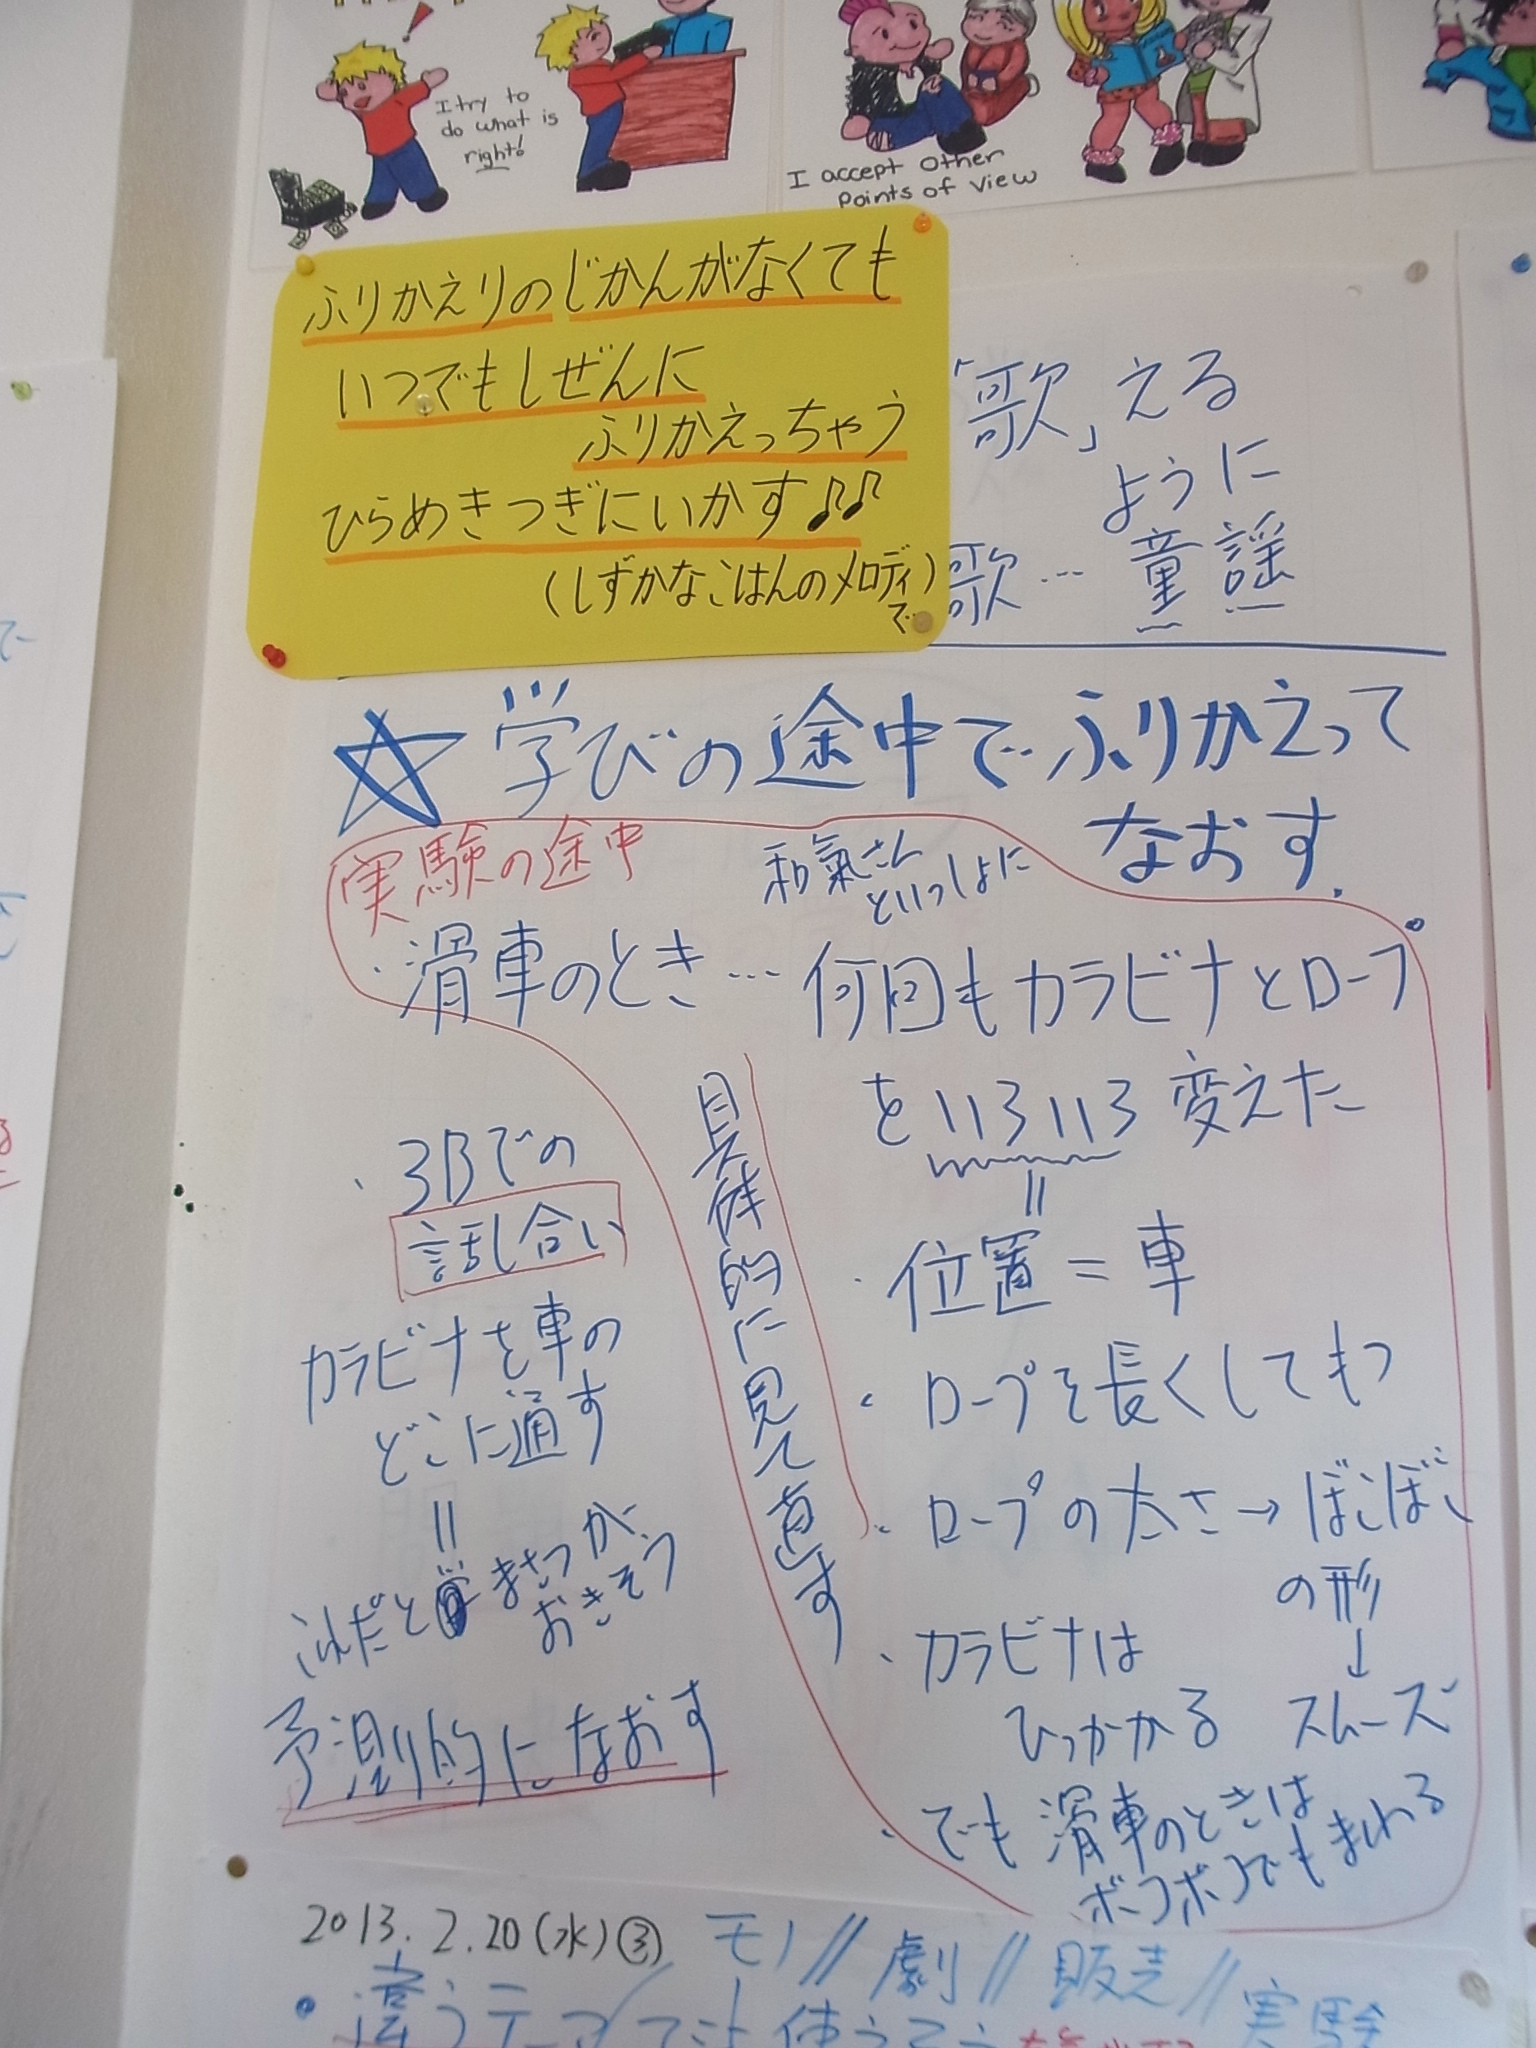 I try to
do what is
right!
I accept other
points of view
ふりかえりのじかんがなくても
いつでもしぜんに
ふりかえっちゃう
ひらめきつぎにいかす♪♪
(しずかなこはんのメロディで)
「歌」える
ように
歌… 童謡
☆学びの途中でふりかえって
なおす.
実験の途中
和氣さん
といっしょに
・滑車のとき… 何回もカラビナとロープ
をいろいろ変えた
=
・位置=車
・ロープを長くしてもつ
・ロープの太さ→ぼこぼこ
の形
↓
スムーズ
・カラビナは
ひっかかる
・でも滑車のときは
ボコボコでもまわる
具体的に見て直す
・3Bでの
話し合い
カラビナを車の
どこに通す
=
これだと まさつが
おきそう
予測的になおす
2013.2.20(水)③ モノ//劇//販売//実験
・違うテーマでも使うそう